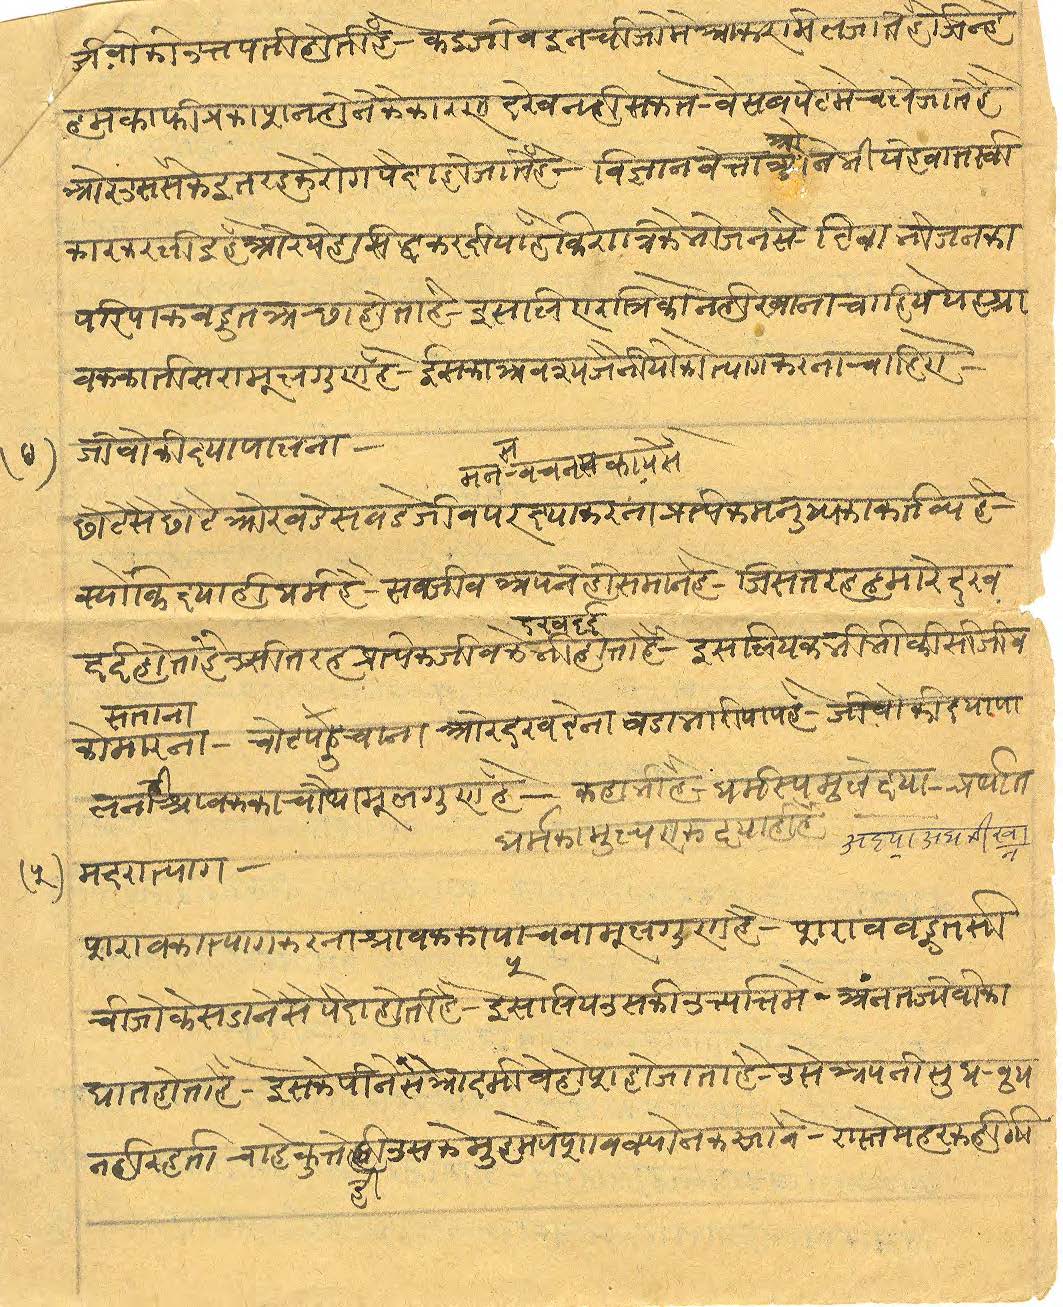 जीवोकी उत्तपती होती है - कइ जीव इन चीजोमे आकर मिल जाते है जिन्हे
हम काफी प्रकाश न होनेके कारण देख नही सकते - वे सब पेटमे चले जाते है
और उससे कइ तरहके रोग पैदा हो जाते है - विज्ञान वेत्ताओने भी ये बात स्वी
कार करली है और ये ही सिद्ध कर दीया है कि रात्रिके भोजनसे - दिवा भोजनका
परिपाक बहुत अच्छा होता है - इसलिए रात्रिको नही खाना चाहिये ये श्रा
वकका तीसरा मूलगुण है - ईसका अवश्य जैनीयोको त्याग करना चाहिए -
(४) जीवोकी दया पालना -
मनसे - वचनसे कायसे
छोटेसे छोटे और बडेसे बडे जीवपर दया करना प्रत्येक मनुष्यका कर्तव्य है -
क्योंकि दया ही धर्म है - सब जीव अपने ही समान है - जिस तरह हमारे दुख
दर्द होता है उसी तरह प्रत्येक जीवके दुखदर्द भी होता है - इसलिये कभी भी किसी जीव
को मारना - सताना चोट पहुंचाना और दुख देना बडा भारी पाप है - जीवोकी दया पा
लनी श्रावकका चौथा मूलगुण है - कहा भी है - धर्मस्य मुलं दया - अर्थात
धर्मका मुल्य एक दया ही है
(५) मदरा त्याग -
शराबका त्याग करना श्रावकका पाचवा ५ मूलगुण है - शराब बहुतसी
चीजोके सडानेसे पैदा होती है - इसलिये उसकी उत्पत्तिमे - अनंत जीवोका
घात होता है - इसके पीनेसे आदमी बेहोश हो जाता है - उसे अपनी सुध-बुध
नही रहती चाहे कुत्ते ही उसके मुहमे पेशाब क्यो न कर जावे - रास्तेमे हर कही गी